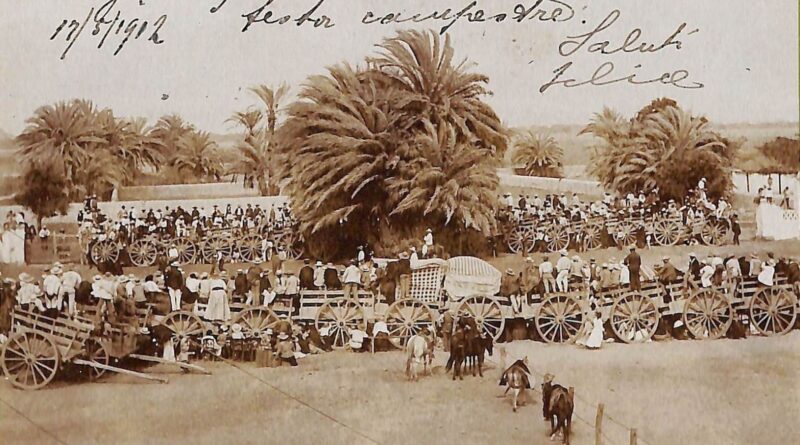 17/5/1912
festa campestre.
Saluti
Felice